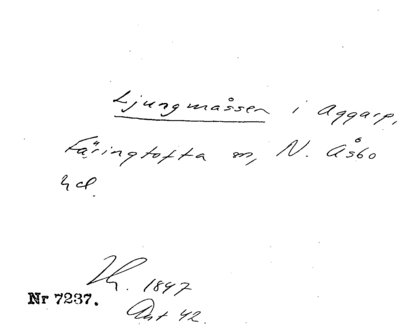 Ljungmåssen i Aggarp,
Färingtofta sn, N. Åsbo
hd.
1847
Nr 7237.
Ant 42.